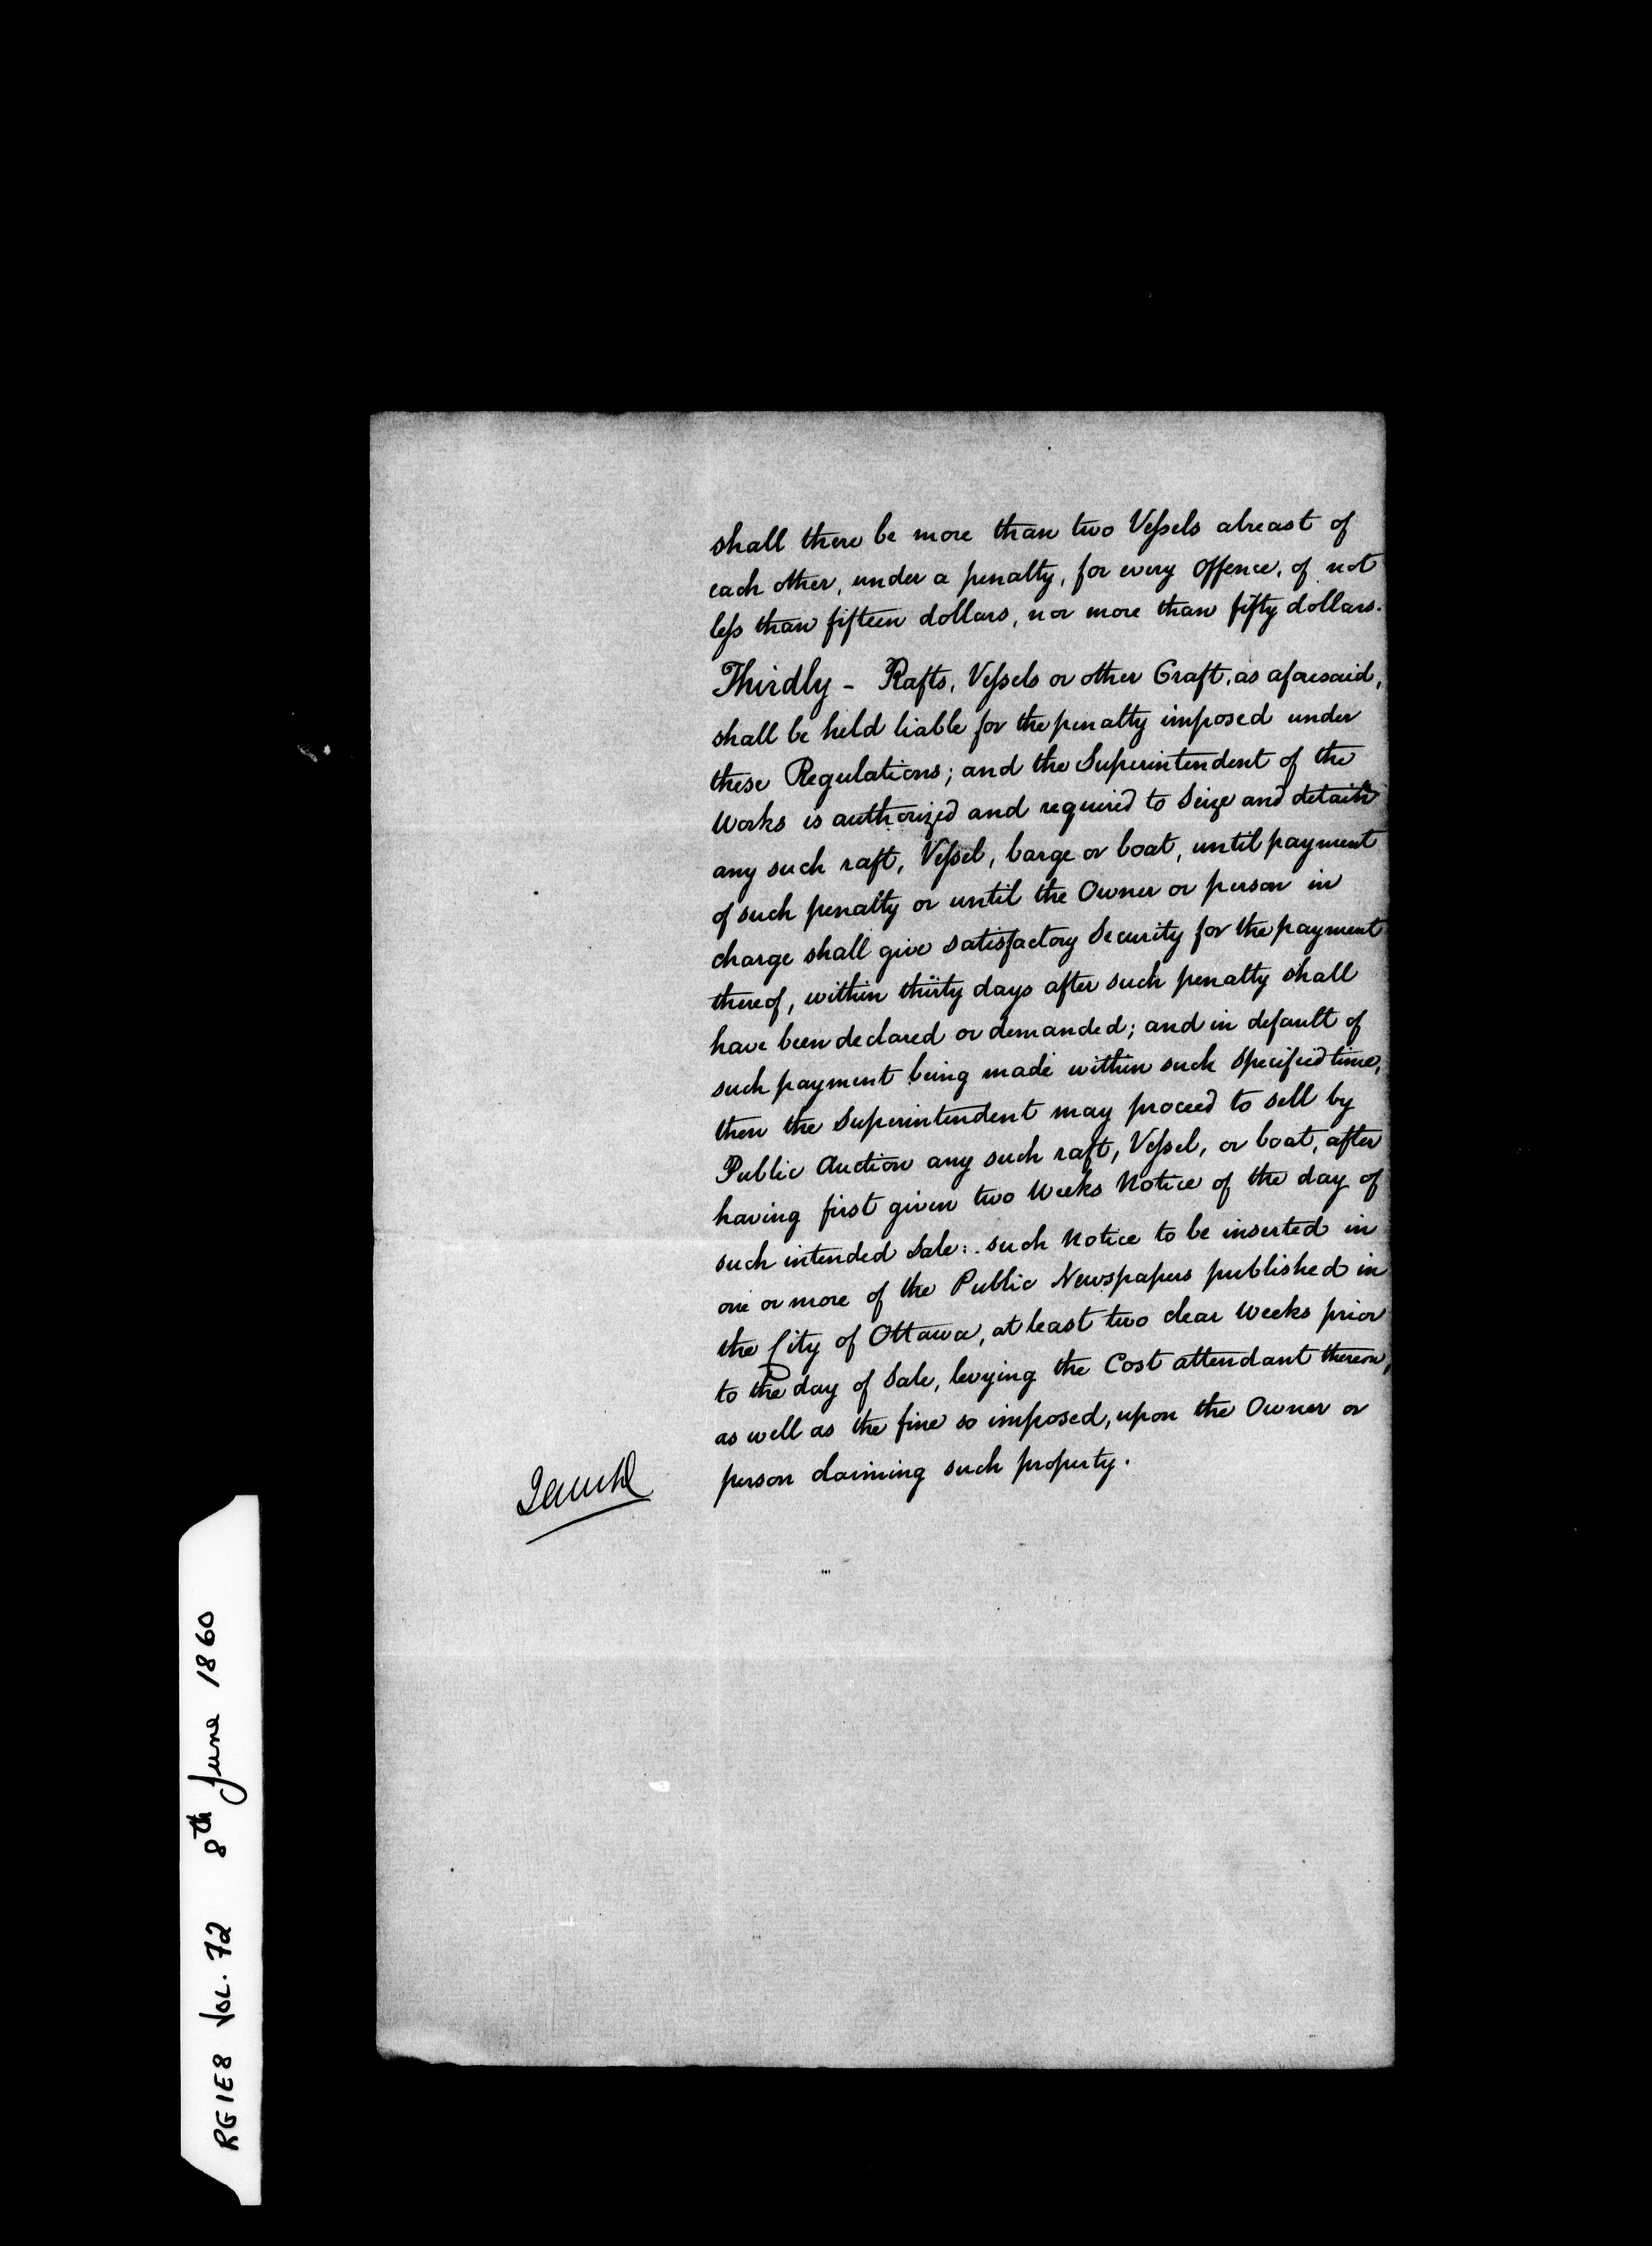 shall there be more than two Vessels abreast of
each other, under a penalty, for every Offence, of not
less than fifteen dollars, nor more than fifty dollars.
Thirdly - Rafts, Vessels or other Craft, as aforesaid,
shall be held liable for the penalty imposed under
these Regulations; and the Superintendent of the
Works is authorized and required to Seize and detain
any such raft, Vessel, barge or boat, until payment
of such penalty or until the Owner or person in
charge shall give satisfactory Security for the payment
thereof, within thirty days after such penalty shall
have been declared or demanded; and in default of
such payment being made within such specified time,
then the Superintendent may proceed to sell by
Public Auction any such raft, Vessel, or boat, after
having first given two Weeks Notice of the day of
such intended Sale: such Notice to be inserted in
one or more of the Public Newspapers published in
the City of Ottawa, at least two clear Weeks prior
to the day of Sale, levying the Cost attendant thereon,
as well as the fine so imposed, upon the Owner or
person claiming such property.
RG1E8 VOL. 72 8th June 1860